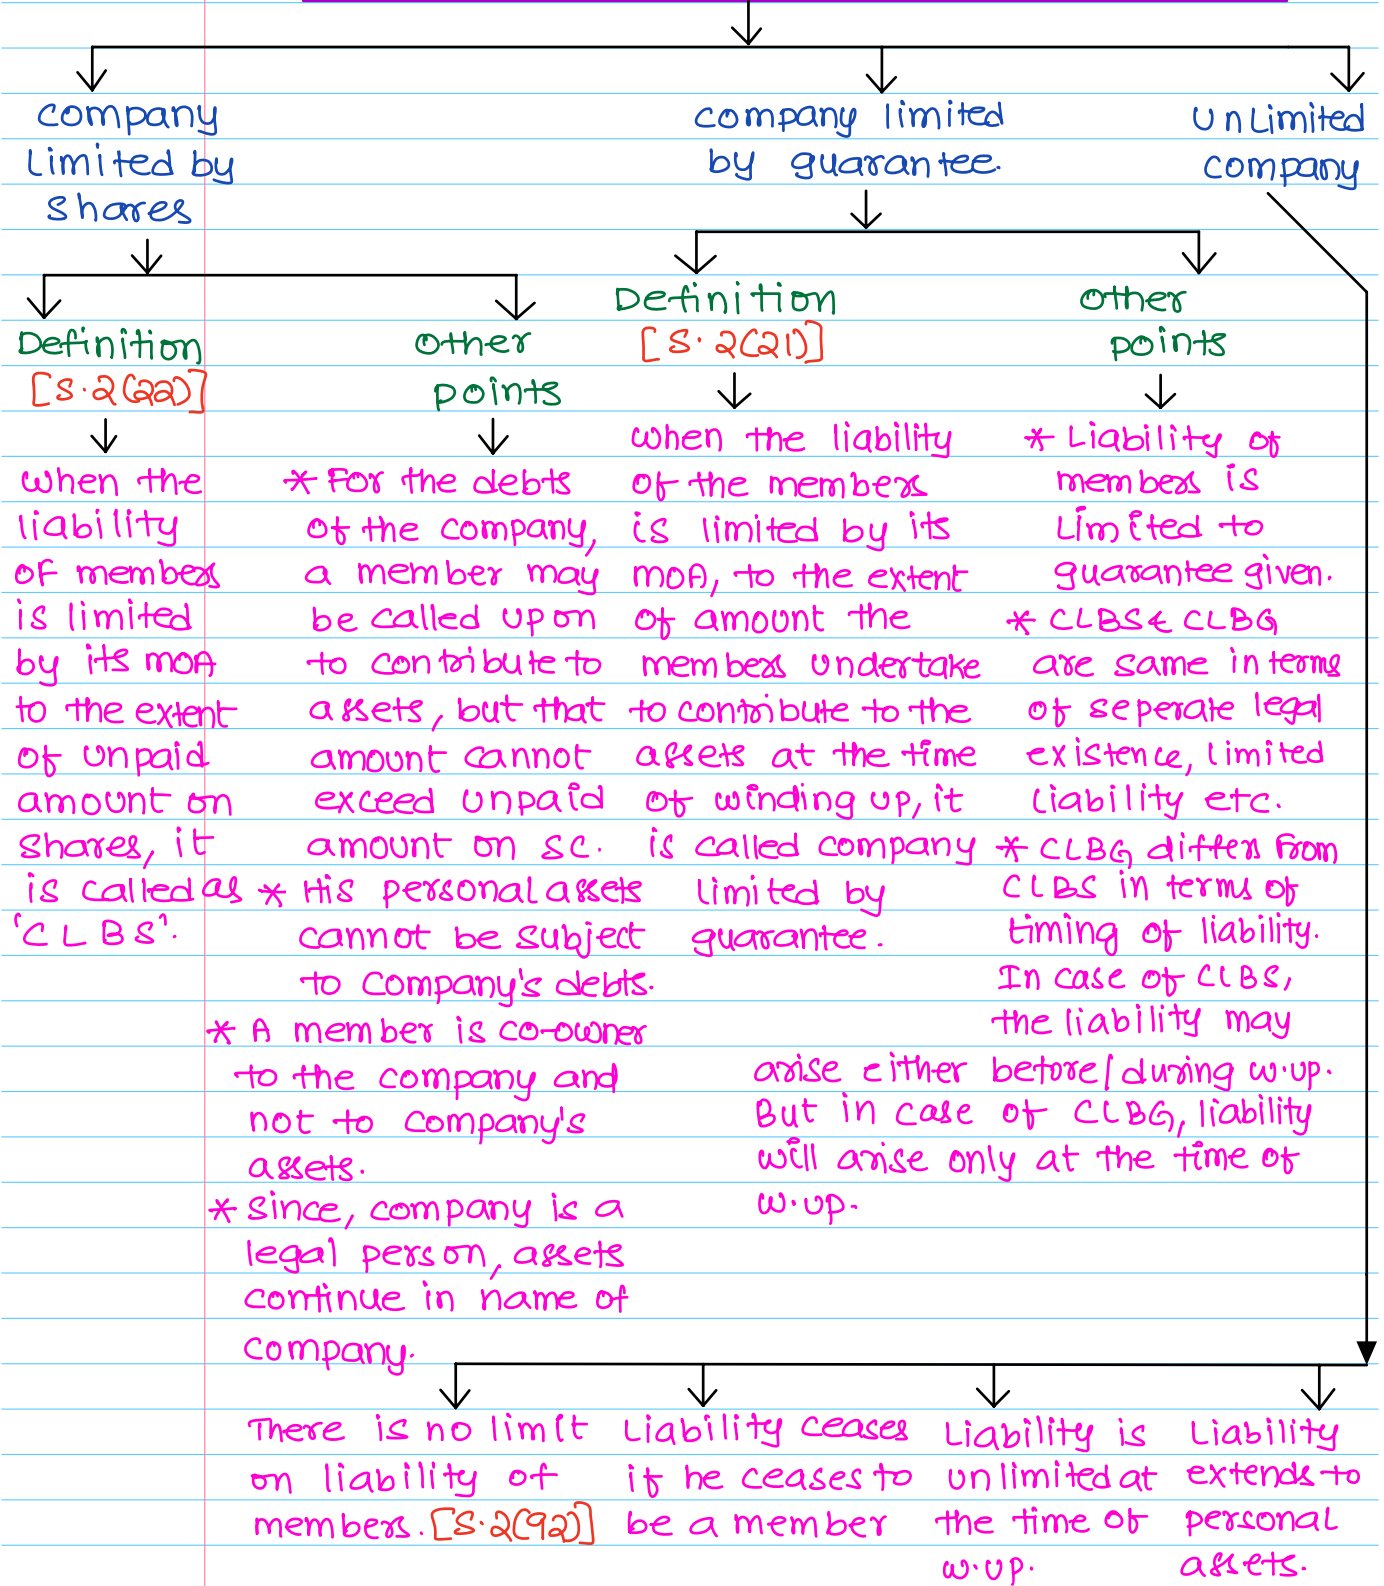 Company
Limited by
Shares
Definition
[S.2(22)]
When the
liability
of members
is limited
by its MOA
to the extent
of unpaid
amount on
shares, it
is called as
'CLBS'.
Other
points
* For the debts
of the company,
a member may
be called upon
to contribute to
assets, but that
amount cannot
exceed unpaid
amount on SC.
* His personal assets
cannot be subject
to Company's debts.
* A member is co-owner
to the company and
not to company's
assets.
* Since, company is a
legal person, assets
continue in name of
company.
company limited
by guarantee.
Definition
[S.2(21)]
When the liability
of the members
is limited by its
MOA, to the extent
of amount the
members undertake
to contribute to the
assets at the time
of winding up, it
is called company
limited by
guarantee.
Other
points
* Liability of
members is
Limited to
guarantee given.
* CLBS & CLBG
are same in terms
of seperate legal
existence, limited
liability etc.
* CLBG differs from
CLBS in terms of
timing of liability.
In case of CLBS,
the liability may
arise either before/during w.up.
But in case of CLBG, liability
will arise only at the time of
w.up.
UnLimited
company
There is no limit
on liability of
members. [S.2(92)]
Liability ceases
if he ceases to
be a member
Liability is
unlimited at
the time of
w.up.
Liability
extends to
personal
assets.